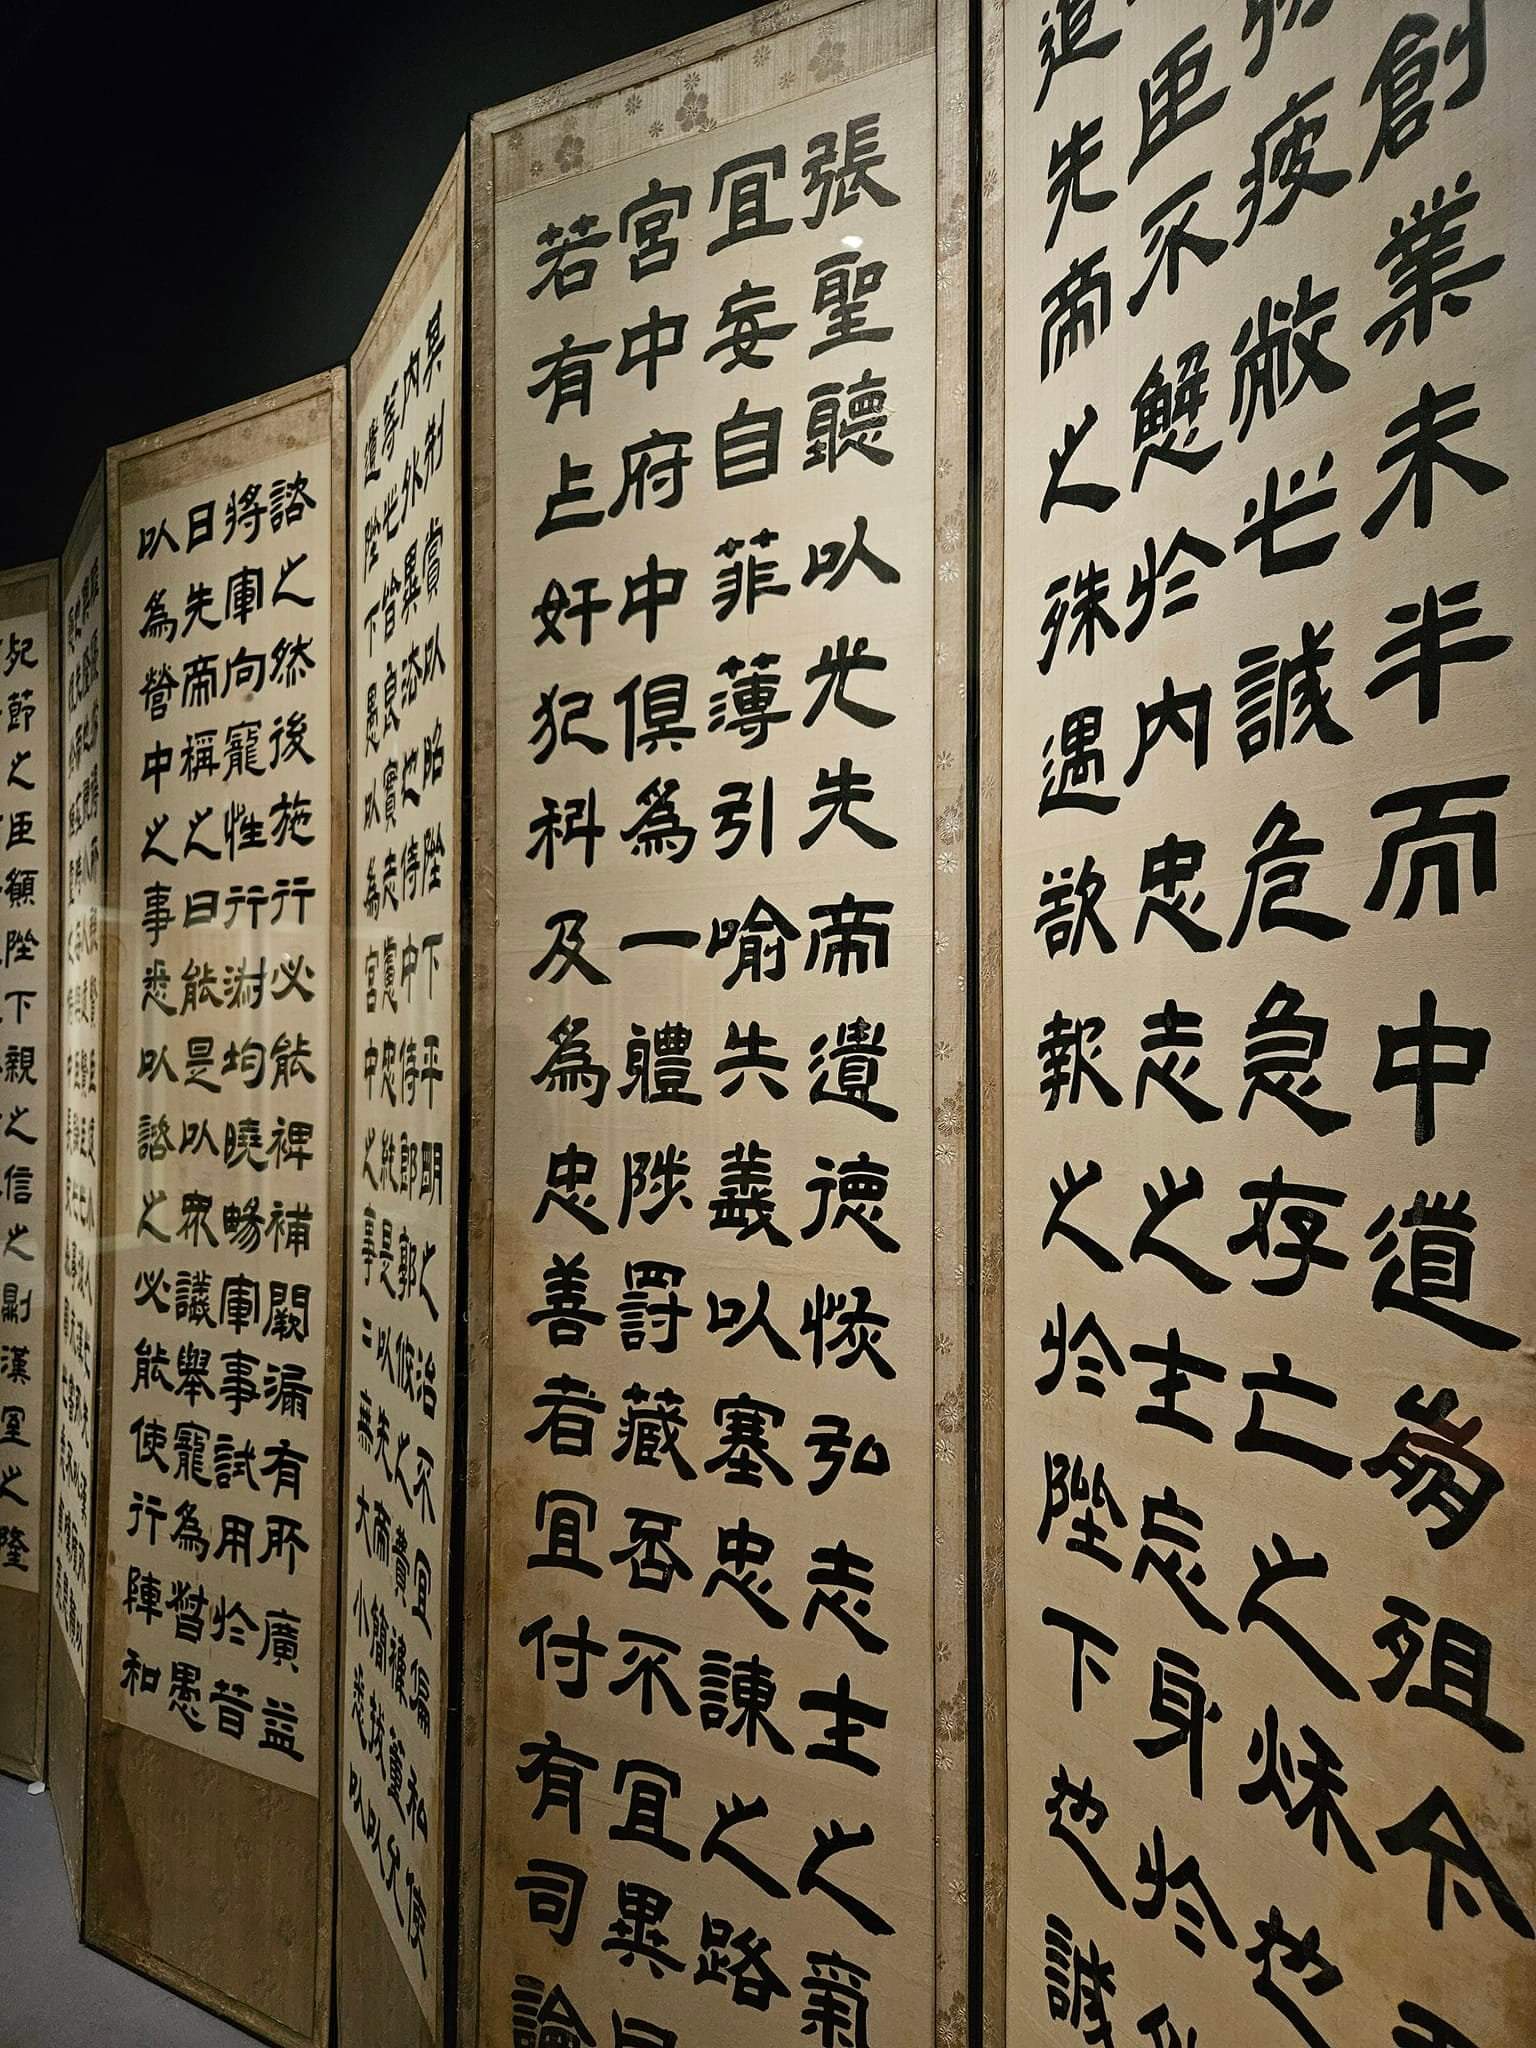 創業未半而中道崩殂今
疲敝此誠危急存亡之秋也
臣不懈於内忠志之士忘身於
追先帝之殊遇欲報之於陛下也誠
張聖聽以光先帝遺德恢弘志士之氣
宜妄自菲薄引喻失義以塞忠諫之路
宮中府中俱為一體陟罰藏否不宜異
若有作奸犯科及為忠善者宜付有司論
其刑賞以昭陛下平明之治不宜偏私使
内外異法也侍中侍郎郭攸之費禕董允
等此皆良實志慮忠純是以先帝簡拔以
遺陛下愚以為宮中之事二無大小悉以
諮之然後施行必能裨補闕漏有所廣益
將軍向寵性行淑均曉暢軍事試用於昔
日先帝稱之曰能是以眾議舉寵為督愚
以為營中之事悉以諮之必能使行陣和
死節之臣願陛下親之信之則漢室之隆